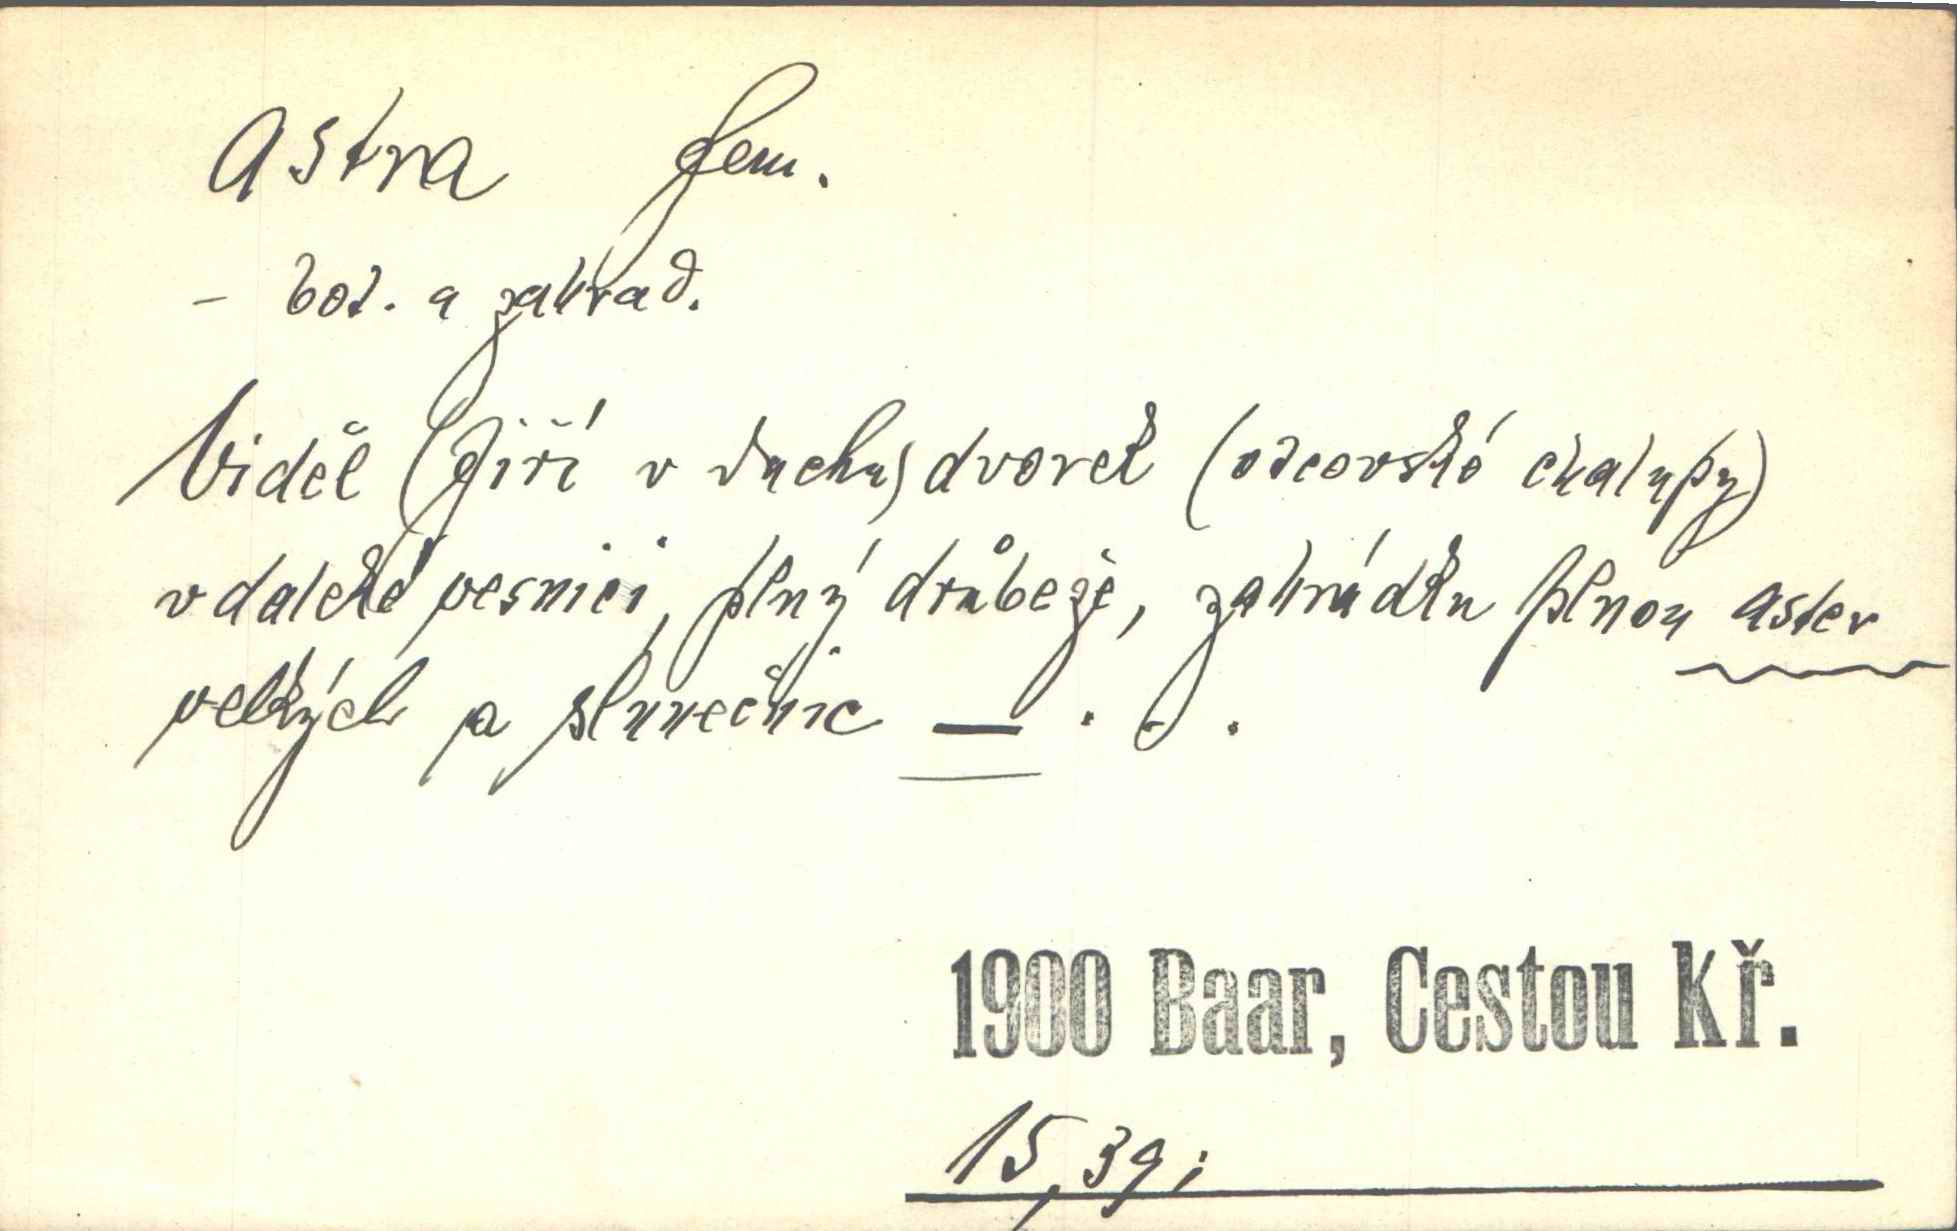 Astra fem.
– bot. a zahrad.
Viděl (Jiří v duchu) dvorek (otcovské chalupy)
v daleké vesnici, plný drůbeže, zahrádku plnou aster
velkých a slunečnic — . . .
1900 Baar, Cestou Kř.
15,39;